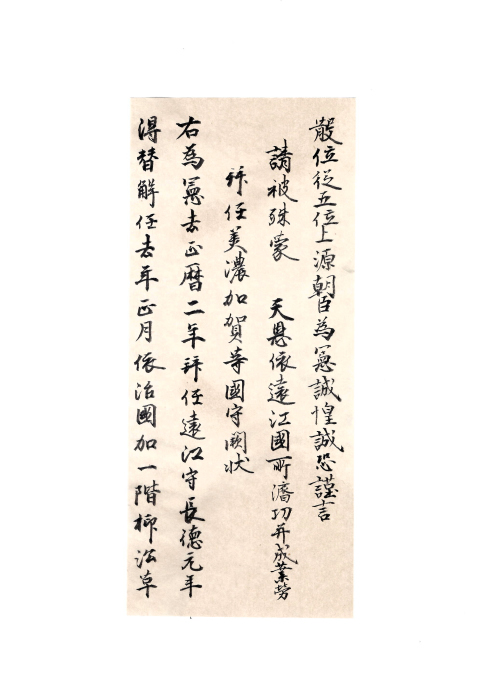 散位從五位上源朝臣為憲誠惶誠恐謹言
請被殊蒙 天恩依遠江國所濟功并成業勞
拜任美濃加賀等國守闕狀
右為憲去正曆二年拜任遠江守長德元年
得替解任去年正月依治國加一階抑法草